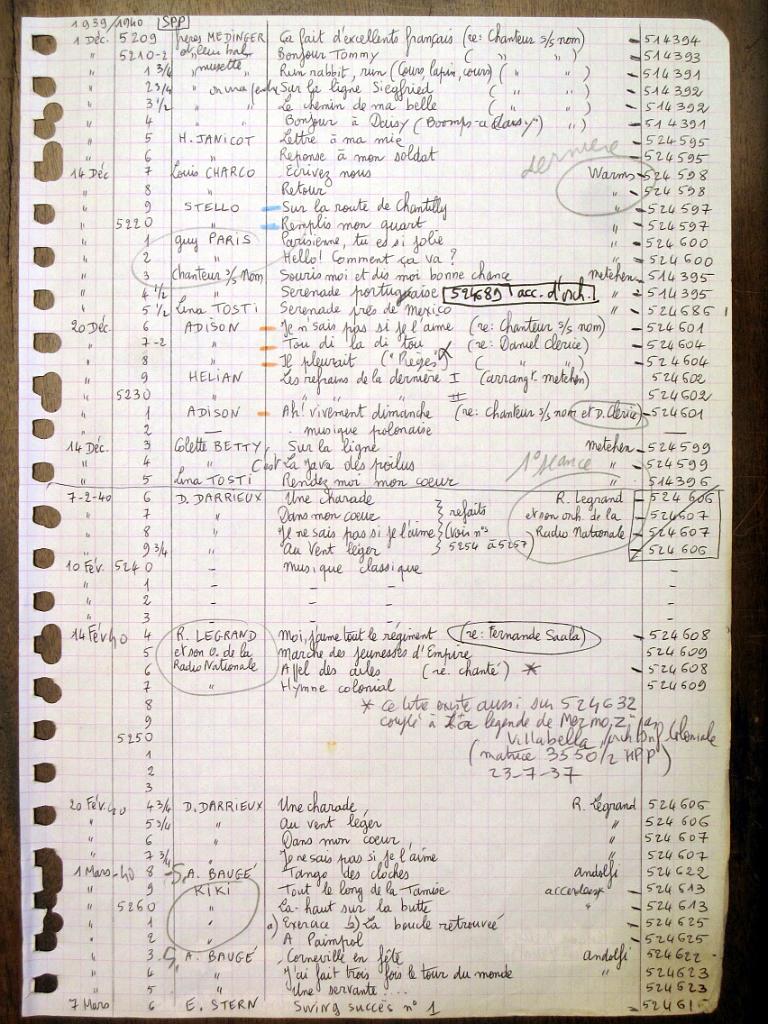 1939/1940 SPP
1 Déc. 5209 frères MEDINGER Ça fait d'excellents français (re: Chanteur s/s nom) - 514394
" 5210-2 et leur bal Bonjour Tommy ( " " ) - 514393
" 1 3/4 musette Run rabbit, run (Cours, lapin, cours) ( " " ) - 514391
" 2 3/4 Sur la ligne Siegfried ( " " ) - 514392
" 3 1/2 Le chemin de ma belle ( " " ) - 514392
" 4 Bonjour à Daisy (Boomps-a Daisy) " ) - 514391
" 5 H. JANICOT Lettre à ma mie - 524595
" 6 " Réponse à mon soldat - 524595
dernière
14 Déc 7 Louis CHARCO Ecrivez nous Warms - 524598
" 8 " Retour " - 524598
" 9 STELLO Sur la route de Chantilly " - 524597
" 5220 " Remplis mon quart " - 524597
" 1 guy PARIS Parisienne, tu es si jolie " - 524600
" 2 " Hello! Comment ça va? " - 524600
" 3 Chanteur s/s Nom Souris moi et dis moi bonne chance metehen - 514395
" 4 1/2 " Serenade portugaise 524689 acc. d'orch. " - 514395
" 5 1/2 Lina TOSTI Serenade près de Mexico " - 524686
20 Déc. 6 ADISON Je n'sais pas si je l'aime (re: Chanteur s/s nom) - 524601
" 7-2 " Tou di la di tou (re: Daniel Clérice) - 524604
" 8 " Il pleurait ("Pièges") ( " " ) - 524604
" 9 HELIAN Les refrains de la dernière I (arrangt. metehen) 524602
" 5230 " " II 524602
" 1 ADISON Ah! vivement dimanche (re: Chanteur s/s nom et D. Clérice) - 524601
" 2 — musique polonaise —
14 Déc. 3 Colette BETTY Sur la ligne metehen - 524599
" 4 " C'est La java des poilus " - 524599
" 5 Lina TOSTI Rendez moi mon coeur - 514396
1° séance
7-2-40 6 D. DARRIEUX Une charade R. Legrand - 524606
" 7 " Dans mon coeur } refaits et son orch. de la - 524607
" 8 " Je ne sais pas si je l'aime } (voir n°s Radio Nationale - 524607
" 9 3/4 " Au Vent léger } 5254 à 5257) - 524606
10 Fév. 5240 - musique classique -
" 1 - - -
" 2 - - -
" 3 - - -
14 Fév 40 4 R. LEGRAND Moi, j'aime tout le régiment (re: Fernande Saala) - 524608
" 5 et son o. de la Marche des jeunesses d'Empire - 524609
" 6 Radio Nationale Appel des ailes (re. chanté) * - 524608
" 7 " Hymne colonial - 524609
8 * ce titre existe aussi sur 524632
9 couplé à La legende de Mermoz par
5250 Villabella, orch Inf Coloniale
1 (matrice 3550/2 HPP)
2 23-7-37
3
20 Fév. 40 4 3/4 D. DARRIEUX Une charade R. Legrand 524606
" 5 3/4 " Au vent léger " 524606
" 6 " Dans mon coeur " 524607
" 7 3/4 " Je ne sais pas si je l'aime " 524607
1 Mars-40 8 A. BAUGÉ Tango des cloches andolfi 524622
" 9 KIKI Tout le long de la Tamise - 524613
" 5260 " Là-haut sur la butte " - 524613
" 1 " a) Exercice b) La boucle retrouvée - 524625
" 2 " A Paimpol - 524625
" 3 A. BAUGÉ Corneville en fête andolfi - 524622
" 4 " J'ai fait trois fois le tour du monde " - 524623
" 5 " Une servante.... - 524623
7 Mars 6 E. STERN Swing succès n° 1 - 524615